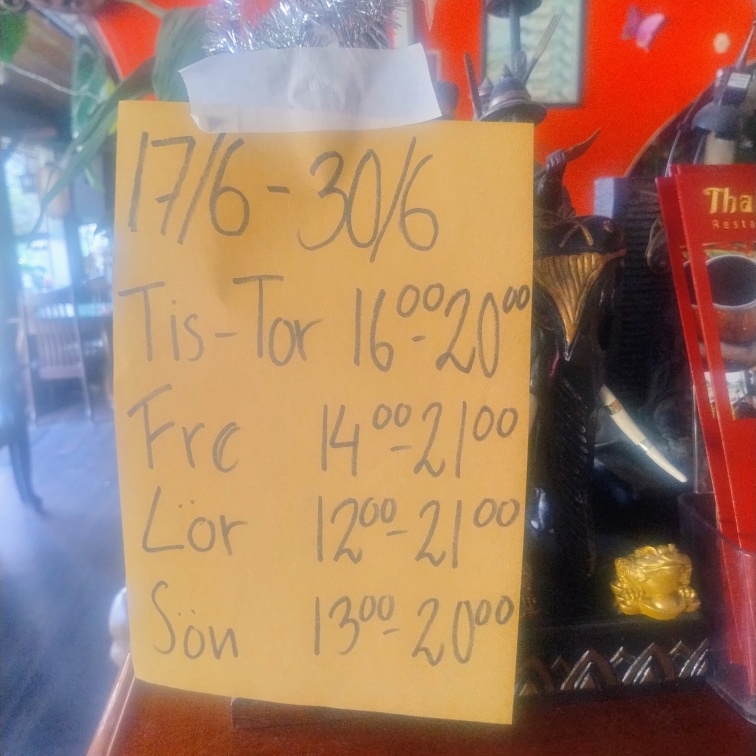 17/6 - 30/6
Tis-Tor 16⁰⁰-20⁰⁰
Fre 14⁰⁰-21⁰⁰
Lör 12⁰⁰-21⁰⁰
Sön 13⁰⁰-20⁰⁰
Tha
Resta